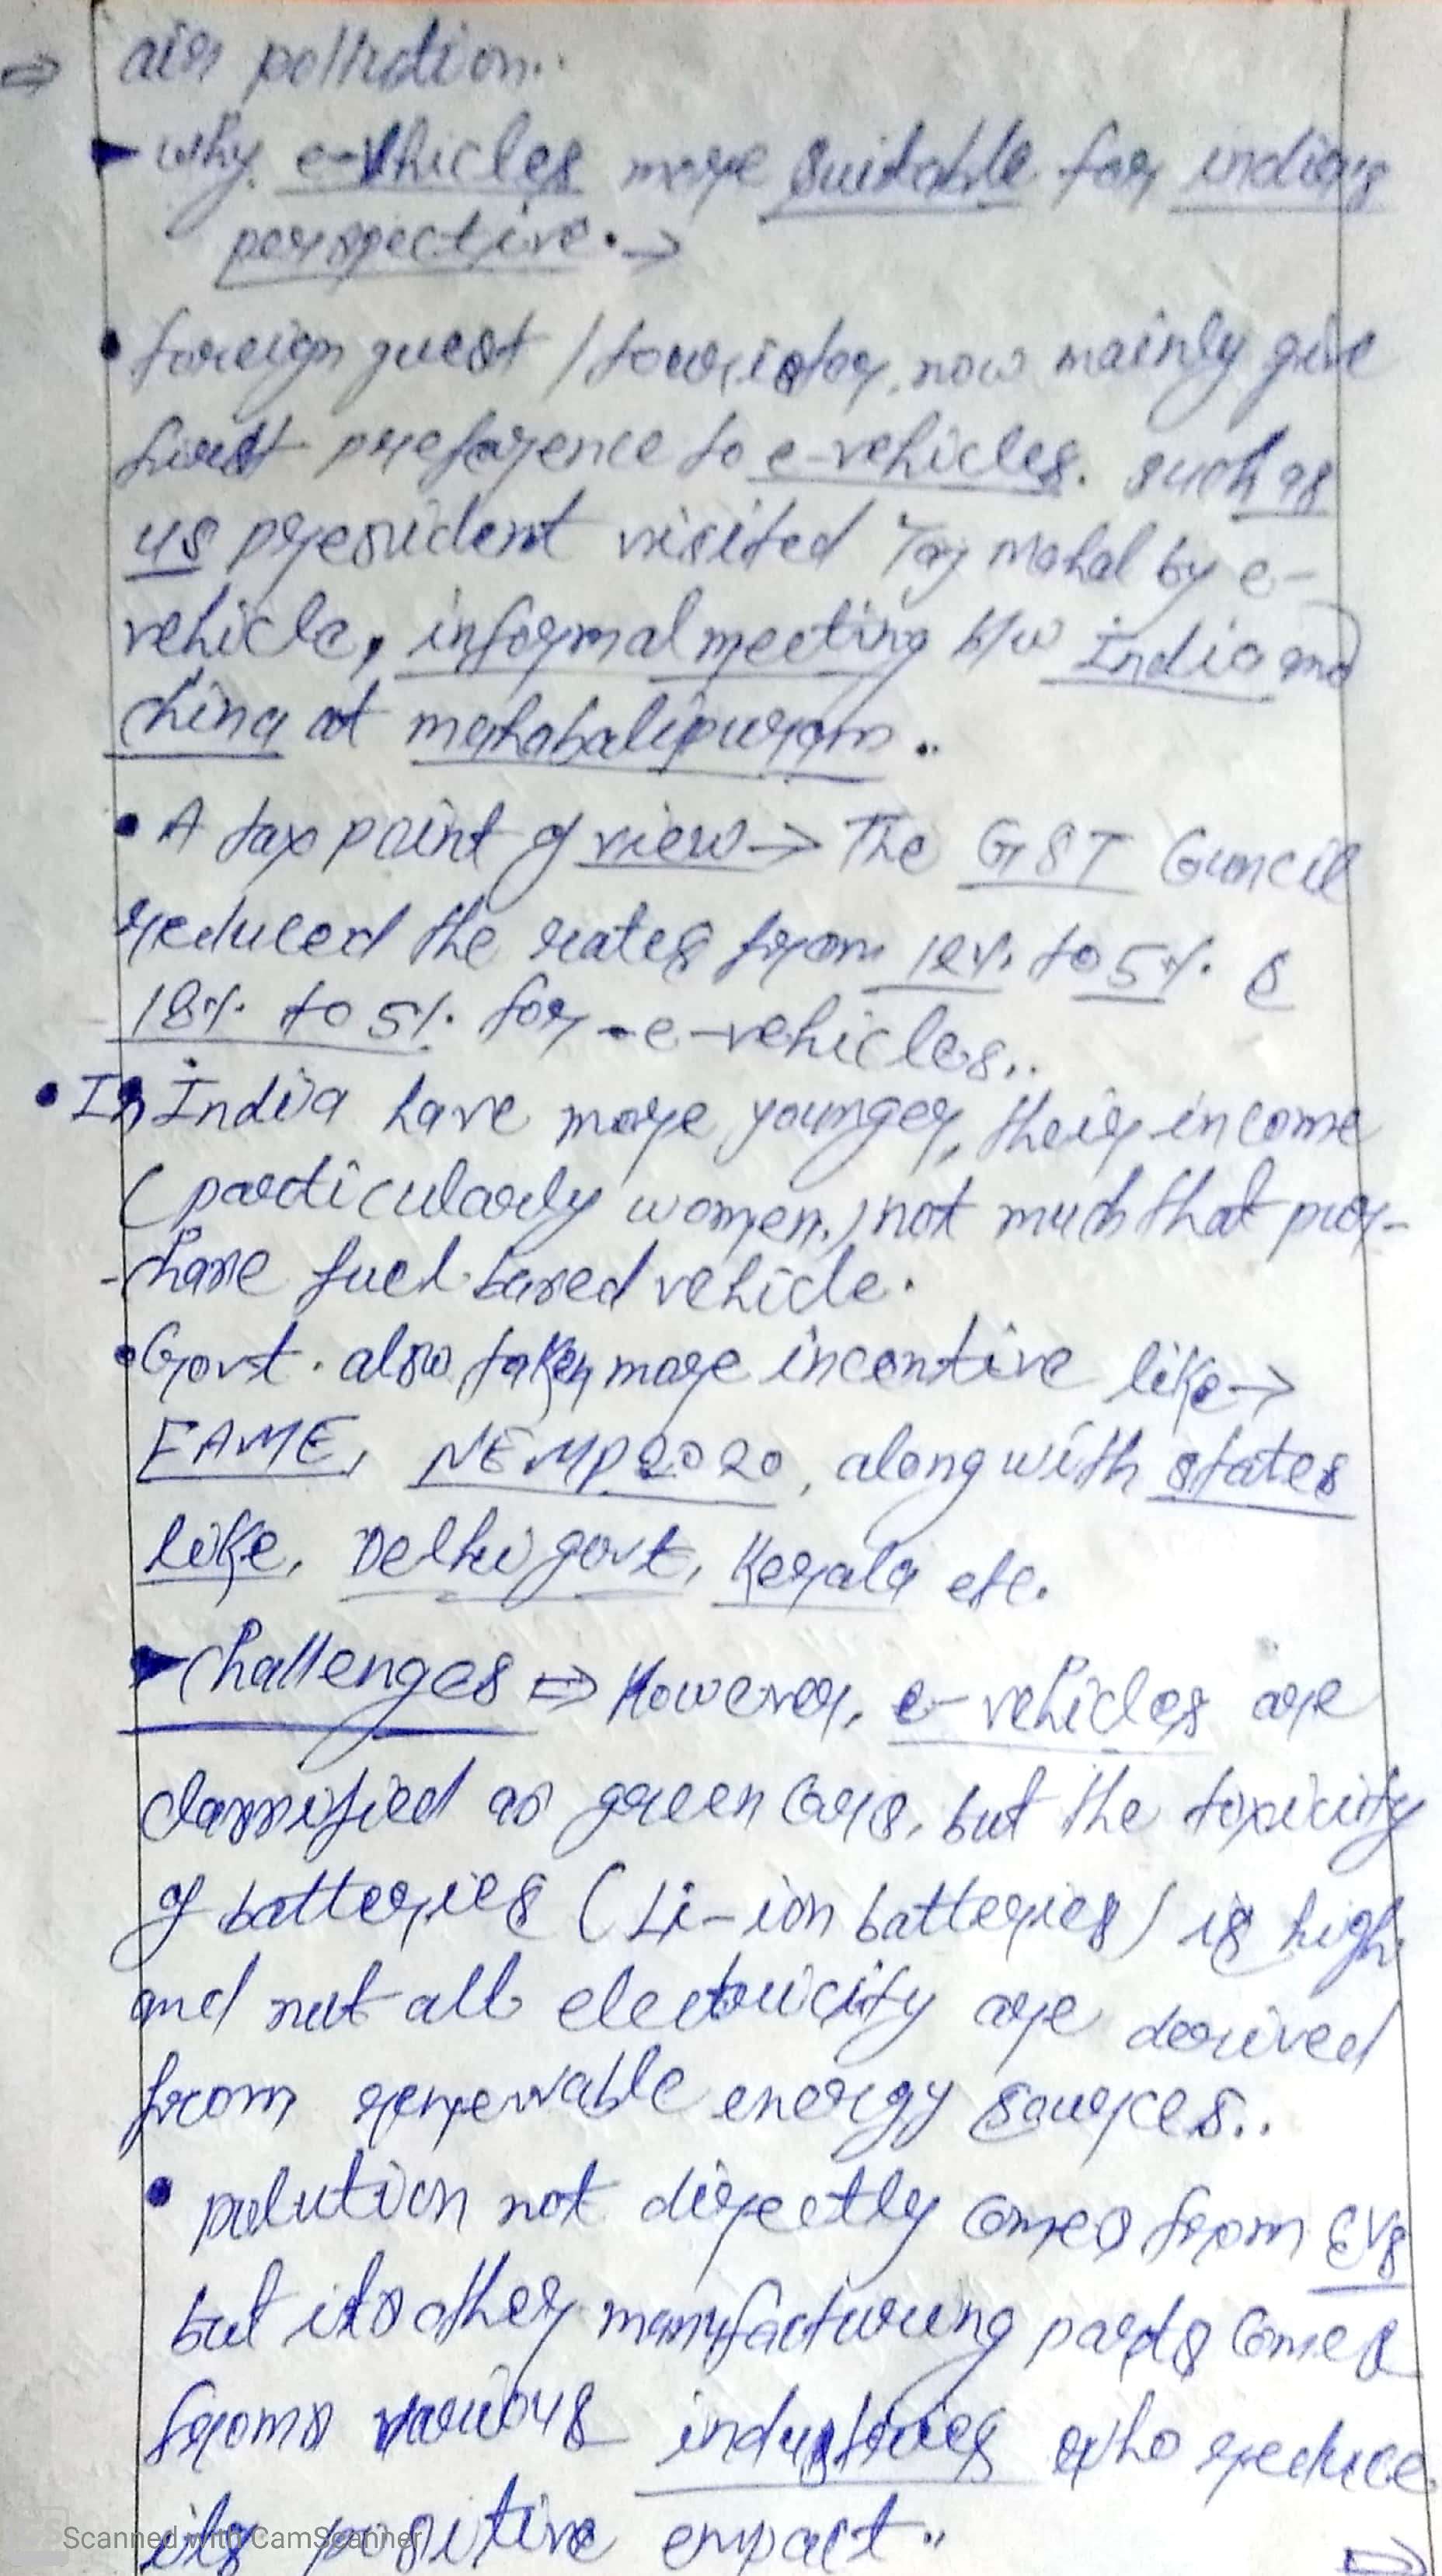 ⇒ air pollution..
► why e-vhicles more suitable for india's
perspective. →
• foreign guest / touristor, now mainly give
first preference to e-vehicles. such as
US president visited Taj Mahal by e-
vehicle, informal meeting b/w India and
china at mahabalipuram..
• A tax point of view → The GST Council
reduced the rates from 12%. to 5%. &
18%. to 5%. for e-vehicles..
• In India have more younger, their income
(particularly women.) not much that pur-
-chase fuel based vehicle.
• Govt. also taken more incentive like →
FAME, NEMP2020, along with states
like, Delhi govt, Kerala etc.
► Challenges ⇒ However, e-vehicles are
classified as green Cars, but the toxicity
of batteries (Li-ion batteries) is high
and not all electricity are derived
from renewable energy sources..
• polution not directly comes from EVs
but its other manufacturing parts comes
from various industries who reduce
its positive empact..
⇒
Scanned with CamScanner